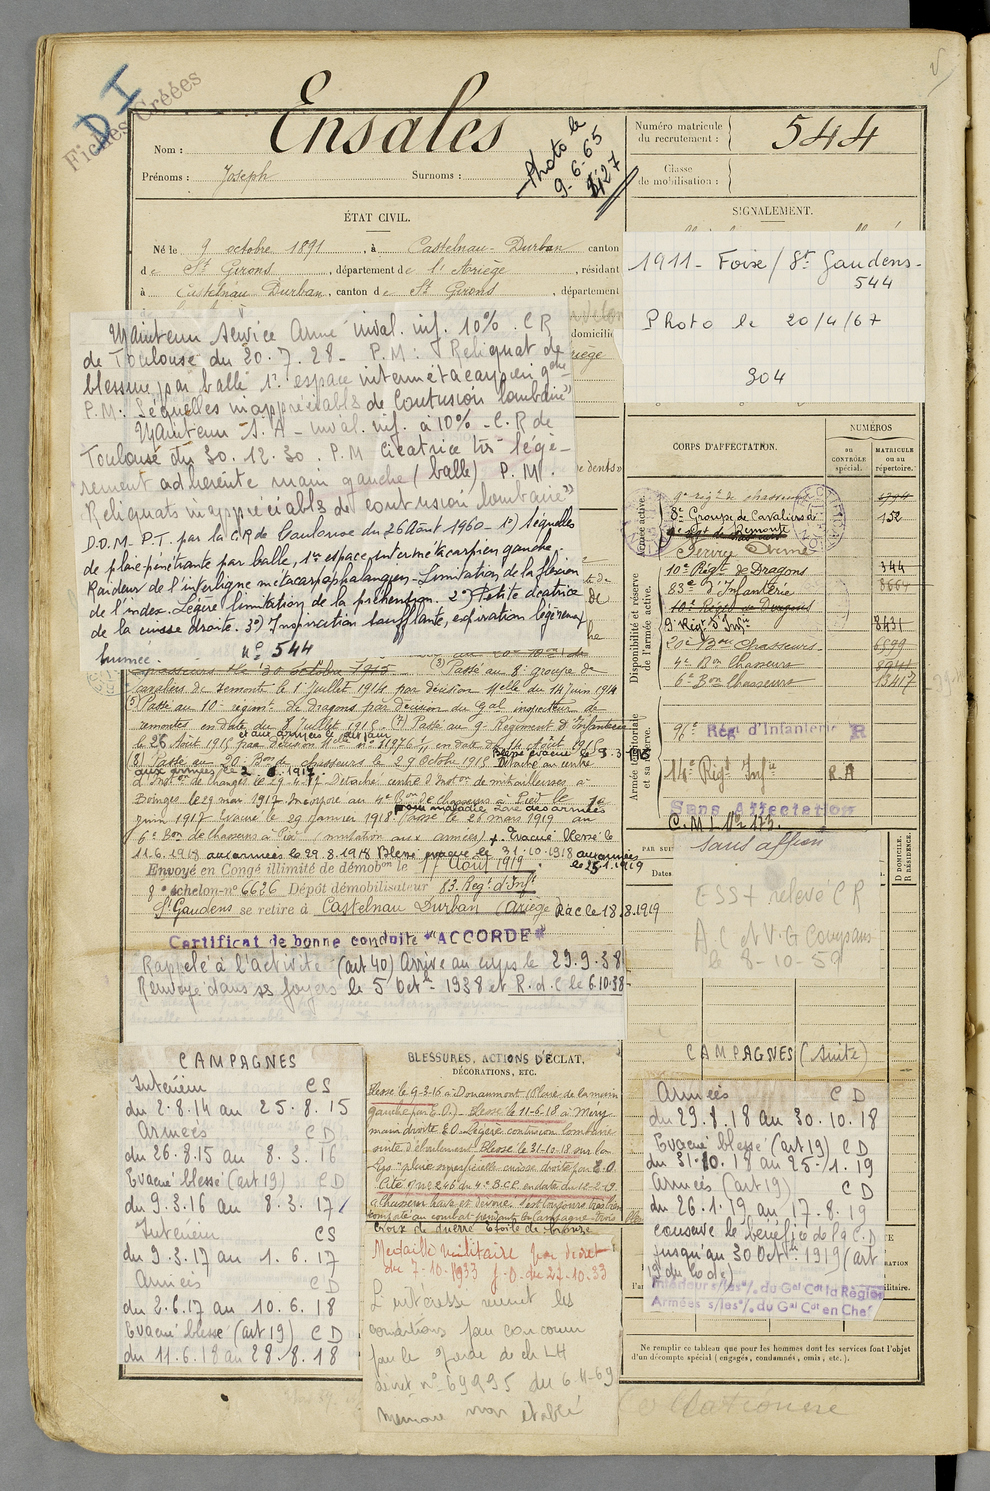 Fiches Créées
D I
Nom : Ensales
Prénoms : Joseph Surnoms :
Photo le
9-6-65
Numéro matricule
du recrutement :
544
Classe
de mobilisation :
ÉTAT CIVIL.
Né le 9 octobre 1891, à Castelnau-Durban canton
de St Girons, département de l'Ariège, résidant
à Castelnau Durban, canton de St Girons, département
SIGNALEMENT.
1911 - Foix / St Gaudens -
544
Photo le 20/4/67
304
Maintenu service Armé inval. inf. 10% . C R
de Toulouse du 20.7.28 - P.M : "Reliquat de
blessure par balle 1er espace intermétacarpien gche
P.M : Séquelles inappréciables de contusion lombaire"
Maintenu S.A - inval. inf. à 10% - C.R de
Toulouse du 30.12.30. P.M cicatrice très légè-
rement adhérente main gauche (balle) P.M.
Reliquats inappréciables de contusion lombaire"
D.O.M. P.T. par la C.R de Toulouse du 26 Août 1960 - 1°) Séquelles
de plaie pénétrante par balle, 1er espace intermétacarpien gauche.
Raideur de l'interligne métacarpophalangien - Limitation de la flexion
de l'index. Légère limitation de la préhension. 2°) Petite cicatrice
de la cuisse droite. 3°) Inspiration soufflante, expiration légèrement
humée. n° 544
CORPS D'AFFECTATION.
NUMÉROS
au
CONTRÔLE
spécial.
MATRICULE
ou au
répertoire.
Disponibilité et réserve
de l'armée active.
9e régt de chasseurs
8e Groupe de Cavaliers de 152
Remonte
Service Armé
10e Régt de Dragons 344
83e d'Infanterie 8664
10e Régt de Dragons
9e Régt d'Infie 8431
20e Bon chasseurs 6899
4e Bon Chasseurs
6e Bon Chasseurs 13417
Armée territoriale
et sa réserve.
96e Régt d'Infanterie R
14e Régt Infie R.A
Sans Affectation
C.M.I. No 173.
sans affon
chasseurs le 30 Octobre 1915 (3) Passé au 8e groupe de
cavaliers de remonte le 1er Juillet 1914 par décision Melle du 14 juin 1914
(5) Passé au 10e régimt de dragons par décision du Gal inspecteur de
remontes en date du 8 Juillet 1915. (7) Passé au 9e Régiment d'Infanterie
et aux armées le dit jour
le 26 Août 1915 par décision Melle n° 11976 en date du 14 Août 1915
(8) Passé au 20e Bon de chasseurs le 29 Octobre 1915 Blessé évacué le 9-3-1916
aux armées le 2.6.1917. Détaché au centre
d'Inston de Changés le 29-4-17 Détaché centre d'Inston de mitrailleuses à
Bourges le 29 mai 1917 Incorpore au 4e Bon de chasseurs à Pied le 1er
juin 1917 Evacué le 29 Janvier 1918 pour maladie, zone des armées Passé le 26 mars 1919 au
6e Bon de chasseurs à Pied (mutation aux armées) + Evacué blessé le
11-6-1918 aux armées le 29.8.1918 Blessé évacué le 31-10-1918 aux armées
le 25-1-1919
Envoyé en Congé illimité de démobon le 17 Août 1919.
8e échelon-n° 6626 Dépôt démobilisateur 83. Regt d'Inft
St Gaudens se retire à Castelnau Durban (Ariège) R.a.c le 18.8.1919
Certificat de bonne conduite "ACCORDÉ"
Rappelé à l'activité (art 40) Arrivé au corps le 29.9.38
Renvoyé dans ses foyers le 5 Octe 1938 et R. d. C le 6.10.38-
PAR SUI
Dates.
D DOMICILE.
R RÉSIDENCE.
ESS+ relevé CR
A.C et V.G Couysans
le 8-10-59
CAMPAGNES
Intérieur C S
du 2.8.14 au 25.8.15
Armées C D
du 26.8.15 au 8.3.16
Evacué blessé (art 19) C D
du 9.3.16 au 8.3.17
Intérieur C S
du 9.3.17 au 1.6.17
Armées C D
du 2.6.17 au 10.6.18
Evacué blessé (art 19) C D
du 11.6.18 au 28.8.18
BLESSURES, ACTIONS D'ÉCLAT,
DÉCORATIONS, ETC.
Blessé le 9-3-16 à Douaumont (Plaie de la main
gauche par E.O.) - Blessé le 11-6-18 à Méry
main droite E.O. Légère contusion lombaire
suite d'éboulement. Blessé le 31-10-18 sur la
Lys "plaie superficielle cuisse droite par E.O.
Cité O n° 246 du 4e B.C.P. en date du 12-2-19.
"Chasseur brave et dévoué s'est toujours très bien
comporté au combat pendant la Campagne - Trois
Croix de Guerre Étoile de bronze
Médaille militaire par décret
du 7-10-1933 J.O. du 27-10-33
L'intéressé réunit les
conditions pour concourir
pour le grade de ch LH
décret n° 69995 du 6-11-69
Mémoire non établi
CAMPAGNES (suite)
Armées C D
du 29.8.18 au 30.10.18
Evacué blessé (art 19) C D
du 31.10.18 au 25.1.19
Armées (art 19) C D
du 26.1.19 au 17.8.19
conserve le bénéfice de la C.D
jusqu'au 30 Octbre 1919 (art
19 du Code)
Intérieur s/les °/. du Gal Cdt la Région
Armées s/les °/. du Gal Cdt en Chef
Ne remplir ce tableau que pour les hommes dont les services font l'objet
d'un décompte spécial (engagés, condamnés, omis, etc.).
Collationné